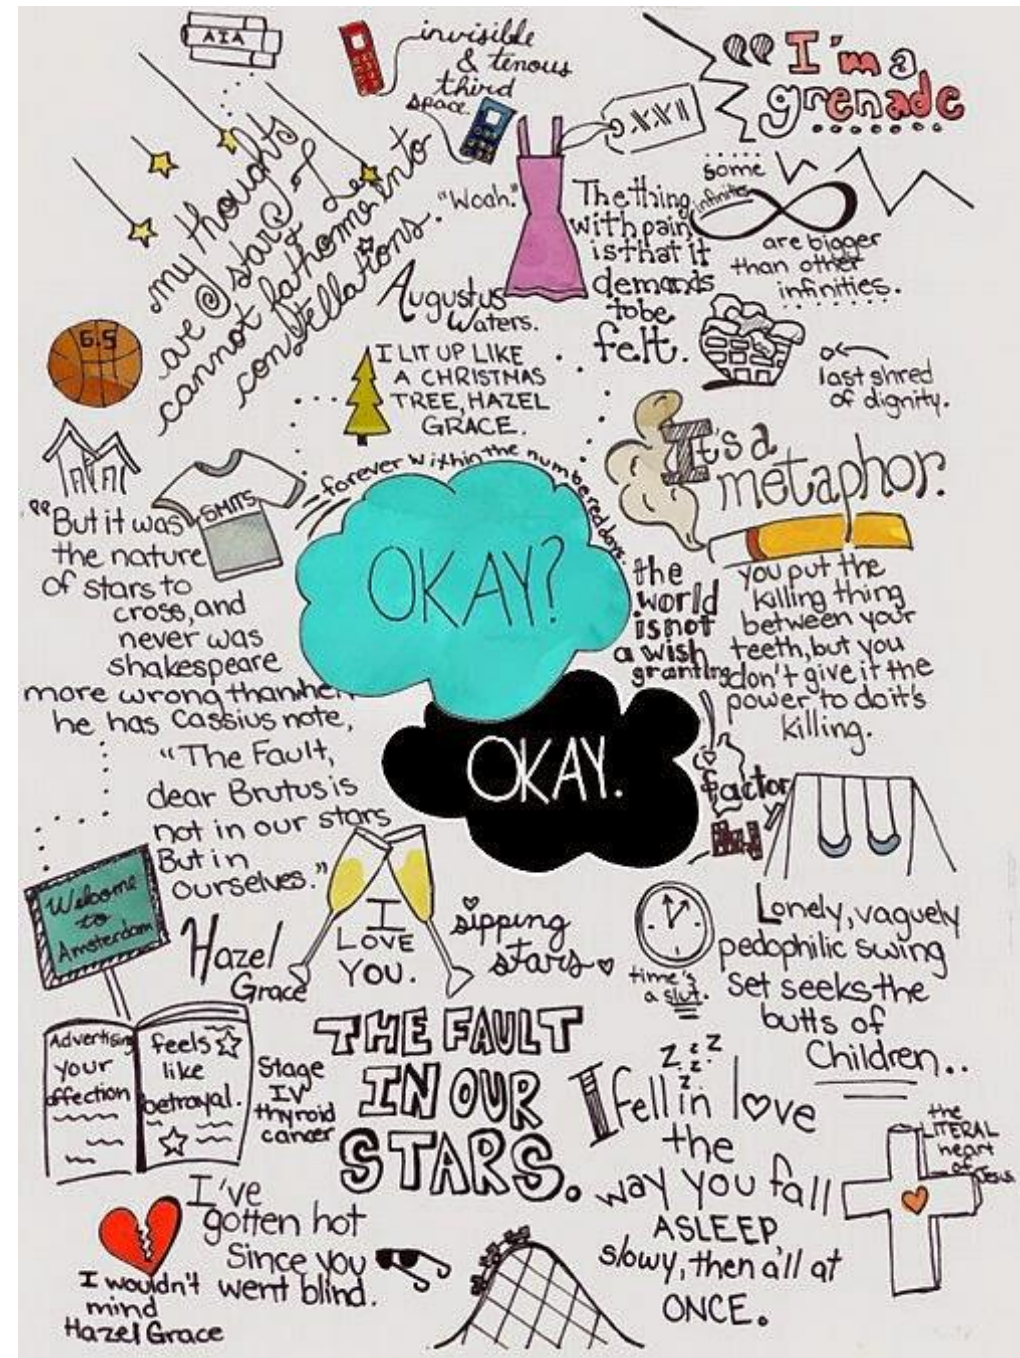 AIA
invisible
& tenous
third
space.
"I'm a
grenade
my thoughts
are @ stars I
cannot fathom into
constellations.
"Woah."
.XXII
The thing
with pain
is that it
demands
to be
felt.
some
infinities
are bigger
than other
infinities.
Augustus
Waters.
6.5
I LIT UP LIKE
A CHRISTMAS
TREE, HAZEL
GRACE.
last shred
of dignity.
It's a
metaphor.
SMITS
forever within the numbered days.
OKAY?
OKAY.
"But it was
the nature
of stars to
cross, and
never was
shakespeare
more wrong than when
he has Cassius note,
"The Fault,
dear Brutus is
not in our stars
But in
ourselves."
the
world
is not
a wish
granting
factory
you put the
killing thing
between your
teeth, but you
don't give it the
power, to do it's
killing.
Welcome
to
Amsterdam
Hazel
Grace
I
LOVE
YOU.
sipping
stars
time's
a slut.
Lonely, vaguely
pedophilic swing
set seeks the
butts of
Children..
Advertising
your
affection
feels
like
betrayal.
Stage
IV
thyroid
cancer
THE FAULT
IN OUR
STARS.
z z z
z
z
I fell in love
the
way you fall
ASLEEP,
slowy, then all at
ONCE.
the
LITERAL
heart
of
Jesus
I've
gotten hot
Since you
went blind.
I wouldn't
mind
Hazel Grace